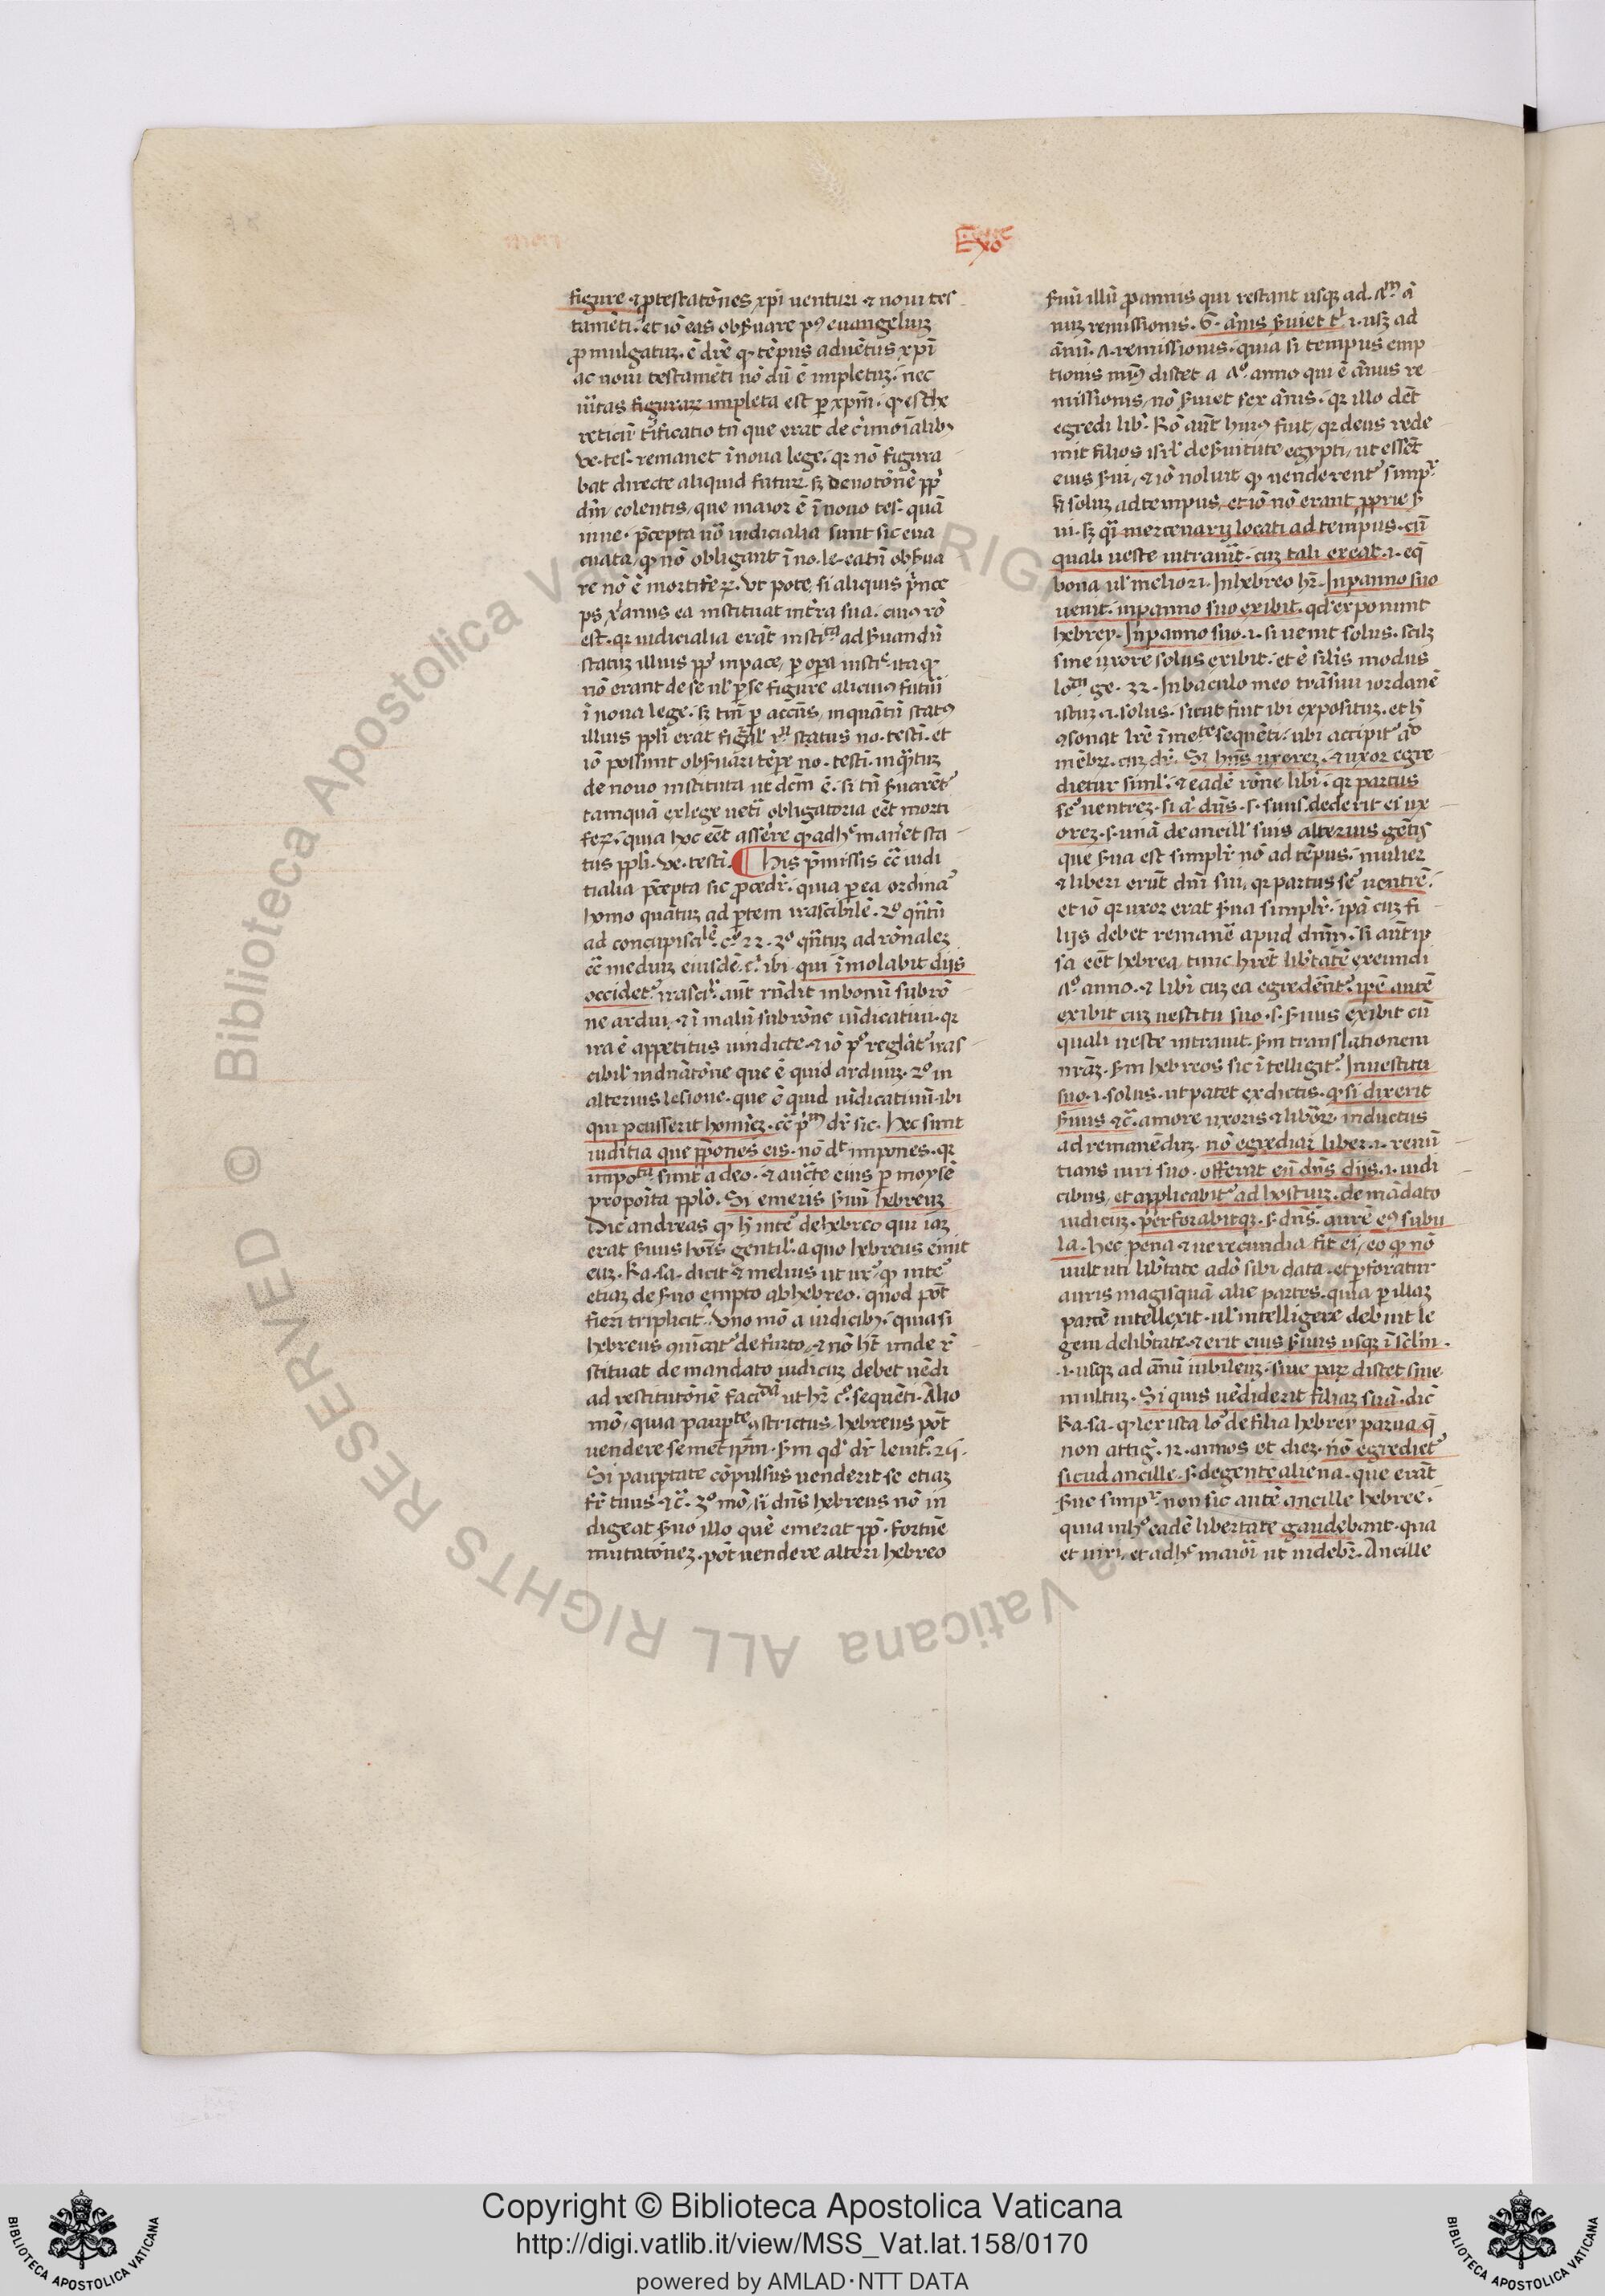 Exo
figure ⁊ ꝓtestatōnes xp̄i uenturi ⁊ noui tes
tamēti. et iō eas obẜuare pꝰ euangeliuꝫ
ꝓmulgatuꝫ. ē dicē̄ ꝙ tēpus aduētus xp̄i
ac noui testamēti nō dū ē impletuꝫ. nec
figuraꝝ impleta est ꝑ xp̄m. ꝙ est he
reticū
ue. tes. remanet ī noua lege. qꝛ nō figura
bat directe aliquid futuꝝ. sꝫ deuotōnē pp̄
dm̄ colentis, que maior ē ī nouo tes. quā
p̄cepta uō iudicialia sunt sic eua
cuata, ꝙ nō obligant ī no. le. eatn̄ obẜua
re nō ē mortifeꝝ. Vt pote, si aliquis p̄nce
ps xanus ea instituat in tr̄a sua. cuiꝰ rō
est. qꝛ iudicialia erāt ad ẜuandū
statuꝫ illius pp̄ in pace,
nō erant de se ul ꝑ se figure alicuiꝰ futuri
ī noua lege. sꝫ tm̄ ꝑ accn̄s, inquātū statꝰ
illius ppl̄i erat status no. testi. et
iō possunt obẜuari tēpe no. testi. inquātuꝫ
de nouo instituta ut dcm̄ ē. si tn̄ ẜuarētᷣ
tamquā ex lege uetī obligatoria eēt morti
feꝝ. quia hoc eēt assere ꝙ adhᶜ manet sta
tus ppl̄i. ue. testi. ¶ His p̄missis cc̄ iudi
tialia p̄cepta sic ꝓcedr̄. quia ꝑ ea ordinaᷣ
homo quātuꝫ ad ꝑtem irascibilē. 2º qn̄tū
ad concupiscilē. cº 22. 3º qn̄tuꝫ ad rōnaleꝫ
cc̄ mediuꝫ eiusdē. c. ibi. qui īmolabit dijs
occidetᷣ. irasci. aūt tn̄dit in bonū sub rō
ne ardui, ⁊ ī malū sub rōne uīdicatiui. qꝛ
ira ē appetitus uindicte. ⁊ iō pº reglātᷣ iras
cibil in dn̄atōne que ē quid arduuꝫ. 2º in
alterius lesione. que ē quid uīdicatiuū. ibi
qui ꝑcusserit homineꝫ. cc̄ pᵐ dr̄ sic. Hec sunt
iuditia que ꝓpones eis. nō dt̄ impones. qꝛ
impoᵗᵃ sunt a deo. ⁊ aucte eius ꝑ moysē
proposita ppl̄o. Si emeris ẜuū hebreuꝫ
Dic andreas ꝙ h̄ inteᷣ de hebreo qui iaꝫ
erat ẜuus hois gentil. a quo hebreus emit
euꝫ. Ra. sa. dicit ⁊ melius ut urᷣ ꝙ inteᷣ
etiaꝫ de ẜuo empto ab hebreo. quod pōt
fieri triplicit. Vno mō a iudicibꝫ. quasi
hebreus de furto, ⁊ nō hēt unde re
stituat de mandato iudicuꝫ debet uēdi
ad restitutōnē ut hr̄ cº sequēti. Alio
mō, quia paupᵗᵉ ꝯstrictus, hebreus pōt
uendere semet ip̄m. ẜm qd̄ dr̄ leuit. 25.
Si paupertate cōpulsus uenderit se etiaꝫ
fr̄ tuus ⁊c̄. 3º mō, si dn̄s hebreus nō in
digeat ẜuo illo quē emerat pp̄. fortūe
mutatōneꝫ. pōt uendere alteri hebreo
ẜuū illū ꝓ annis qui restant usqꝫ ad. 7ᵐ ā
nuꝫ remissionis. 6. ānis ẜuiet t. i. usqꝫ ad
ānū. 7. remissionis. quia si tempus emp
tionis minꝰ distet a 7º. anno qui ē ānus re
missionis, nō ẜuiet sex ānis. qꝛ illo dēt
egredi lib. Rō aūt huiꝰ fuit, qꝛ deus rede
mit filios isrl̄ de ẜuitute egypti, ut essēt
eius ẜui, ⁊ iō noluit ꝙ uenderentᷣ simpᵣ.
sꝫ soluꝫ ad tempus, et iō nō erant ꝓprie ẜ
ui. sꝫ qͣi mercenarij locati ad tempus. cū
quali ueste intrauit. cuꝫ tali exeat. i. eq̄
bona ul meliori. In hebreo hr̄. In panno suo
uenit. in panno suo exibit. qd̄ exponunt
hebrey. In panno suo. i. si uenit solus. scilꝫ
sine uxore solus exibit. et ē silis modus
loᵈⁱ ge. 32. In baculo meo trāsiui iordanē
istuꝫ. i. solus. sicut fuit ibi expositum. et h̄
ꝯsonat lr̄e īmeᵗᵉ sequēti. ubi accipitᷣ
mēbꝝ. cuꝫ dr̄. Si hn̄s uxoreꝫ. ⁊ uxor egre
dietur siml. ⁊ eadē rōne libi. qꝛ partus
seᷣ uentreꝫ. si aͣ. dn̄s. s. suus. dederit ei ux
oreꝫ. s. unā de ancill suis alterius gētis
que ẜua est simplr̄ nō ad tēpus. mulier
⁊ liberi erūt dn̄i sui. qꝛ partus seᷣ uentrē.
et iō qꝛ uxor erat ẜua simplr̄. ip̄a cuꝫ fi
lijs debet remanē apud dnm̄. si aūt ip̄
sa eēt hebrea tunc hr̄et libtatē exeundi
7º anno. ⁊ libi cuꝫ ea egredēntᷣ. ip̄e autē
exibit cuꝫ uestitu suo. s. ẜuus exibit cū
quali ueste intrauit. ẜm translationem
nrāꝫ. ẜm hebreos sic ītelligitᷣ. In uestitu
suo. i. solus. ut patet ex dictis. ꝙ si dixerit
ẜuus ⁊c̄. amore uxoris ⁊ liboꝝ. inductus
ad remanēduꝫ. nō egrediar liber. i. renū
tians iuri suo. offerat eū dn̄s dijs. i. iudi
cibus, et applicabitᷣ ad hostiuꝫ. de mādato
iudicuꝫ. perforabitqꝫ. s. dn̄s. aurē eꝰ subu
la. hec pena ⁊ uerecundia fit ei, eo ꝙ nō
uult uti libtate a dō sibi data. et ꝑforatur
auris magis quā alie partes. quia ꝑ illaꝫ
partē intellexit. ul intelligere debuit le
gem de libtate. ⁊ erit eius ẜuus usqꝫ ī sclm̄.
.i. usqꝫ ad ānū iubileuꝫ. siue paꝝ distet siue
multuꝫ. Si quis uēdiderit filiaꝫ suā. dic̄
Ra. sa. ꝙ lex ista loᷣ de filia hebrey parua q̄
non attigꝫ. 12. annos et dieꝫ. nō egredietᷣ
sicud ancille. s. de gente aliena. que erāt
ẜue simpᵣ. non sic autē ancille hebree.
quia in hᶜ eadē libertate gaudebant. qua
et uiri, et adhᶜ maiori ut uidebr̄. Ancille
Copyright © Biblioteca Apostolica Vaticana
http://digi.vatlib.it/view/MSS_Vat.lat.158/0170
powered by AMLAD·NTT DATA
BIBLIOTECA APOSTOLICA VATICANA
BIBLIOTECA APOSTOLICA VATICANA
© Biblioteca Apostolica Vaticana ALL RIGHTS RESERVED